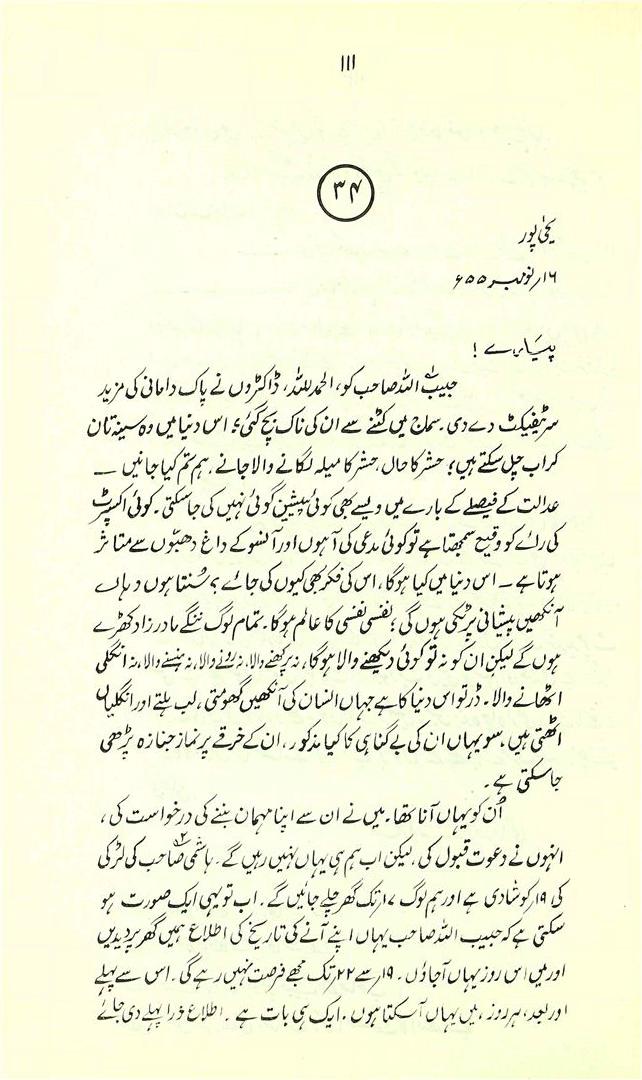 ۱۱۱
۳۴
یحیٰی پور
۱۶؍ نومبر ۵۵ء
پیارے !
حبیب اللہ صاحب کو، الحمد للہ، ڈاکٹروں نے پاک دامانی کی مزید
سرٹیفیکٹ دے دی۔ سماج میں کٹنے سے ان کی ناک بچ گئی؛ اس دنیا میں وہ سینہ تان
کر اب چل سکتے ہیں؛ حشر کا حال، حشر کا میلہ لگانے والا جانے۔ ہم تم کیا جانیں ۔۔
عدالت کے فیصلے کے بارے میں ویسے بھی کوئی پیشین گوئی نہیں کی جا سکتی۔ کوئی اکسپرٹ
کی رائے کو وقیع سمجھتا ہے تو کوئی مدعی کی آہوں اور آنسو کے داغ دھبّوں سے متاثر
ہوتا ہے ۔ اس دنیا میں کیا ہوگا، اس کی فکر بھی کیوں کی جائے؟ سُنتا ہوں وہاں
آنکھیں پیشانی پر ٹکی ہوں گی؛ نفسی نفسی کا عالم ہوگا۔ تمام لوگ ننگے مادر زاد کھڑے
ہوں گے لیکن ان کو نہ تو کوئی دیکھنے والا ہوگا، نہ پرکھنے والا، نہ رونے والا، نہ ہنسنے والا، نہ انگلی
اٹھانے والا۔ ڈر تو اس دنیا کا ہے جہاں انسان کی آنکھیں گھومتی، لب ہلتے اور انگلیاں
اٹھتی ہیں، سو یہاں ان کی بے گناہی کا کیا مذکور، ان کے خرقے پر نماز جنازہ پڑھی
جا سکتی ہے۔
اُن کو یہاں آنا تھا۔ میں نے ان سے اپنا مہمان بننے کی درخواست کی،
انہوں نے دعوت قبول کی، لیکن اب ہم ہی یہاں نہیں رہیں گے۔ ہاشمی صاحب۲ کی لڑکی
کی ۱۹؍ کو شادی ہے اور ہم لوگ ۱۷؍ تک گھر چلے جائیں گے۔ اب تو یہی ایک صورت ہو
سکتی ہے کہ حبیب اللہ صاحب یہاں اپنے آنے کی تاریخ کی اطلاع ہمیں گھر پر دیدیں
اور میں اس روز یہاں آ جاؤں۔ ۱۹؍ سے ۲۲؍ تک مجھے فرصت نہیں رہے گی۔ اس سے پہلے
اور بعد، ہر روز، میں یہاں آ سکتا ہوں۔ ایک ہی بات ہے ۔ اطلاع ذرا پہلے دی جائے